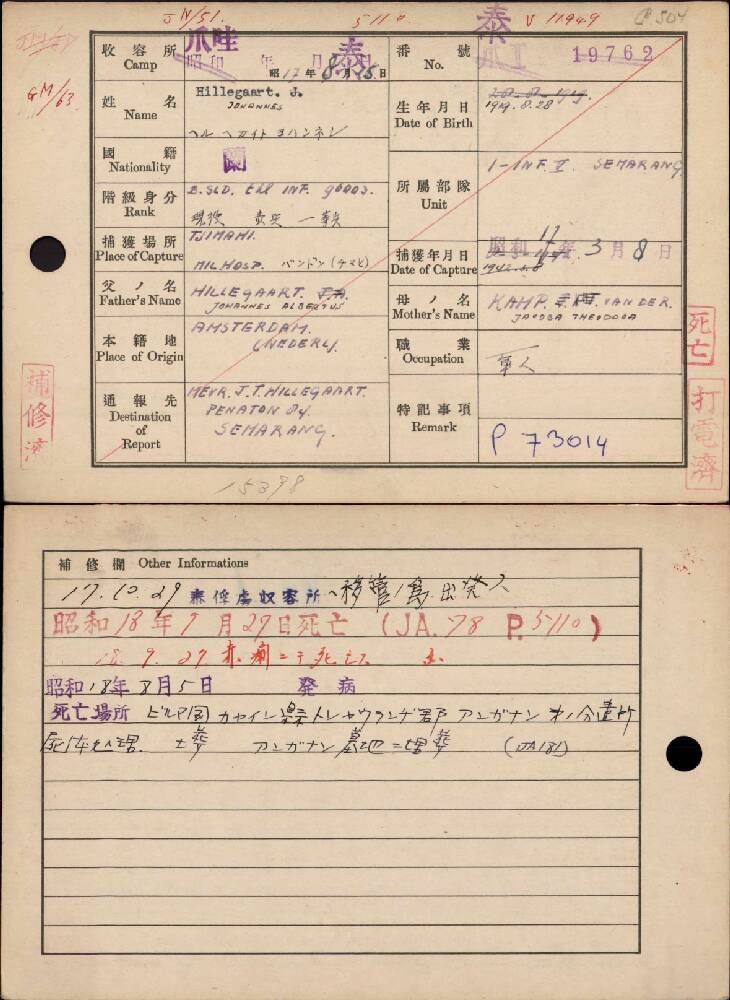 JN/51.
5110
泰
V 11949
P 504
GM/63
收容所 Camp
爪哇
泰
昭和 年 月 日
昭17年8月15日
番號 No.
爪I
19762
姓名 Name
Hillegaart. J.
JOHANNES
生年月日 Date of Birth
28-8-1919.
1919.8.28
國籍 Nationality
蘭
階級身分 Rank
E.SLD. INF.
現役
所屬部隊 Unit
1-INF. V. SEMARANG
捕獲場所 Place of Capture
TJIMAHI.
MIL HOSP. バンドン(チマヒ)
捕獲年月日 Date of Capture
昭和17年3月8日
父ノ名 Father's Name
HILLEGAART. J.A.
JOHANNES ALBERTUS
母ノ名 Mother's Name
KAMP. VAN DER.
JACOBA THEODORA
本籍地 Place of Origin
AMSTERDAM.
(NEDERL).
職業 Occupation
軍人
通報先 Destination of Report
MEVR. J.T. HILLEGAART.
PENATON 84.
SEMARANG.
特記事項 Remark
P 73014
死亡
打電濟
補修濟
15398
補修欄 Other Informations
17.10.29 泰俘虜収容所ヘ移管ノ為出発ス
昭和18年9月27日死亡 (JA.78 P.5110)
18.9.27. 赤痢ニテ死亡ス
昭和18年8月5日 発病
死亡場所 ビルマ国 カヤイン県 アンガナン 分遣所
死体処理. 土葬 アンガナン墓地ニ埋葬 (JA181)